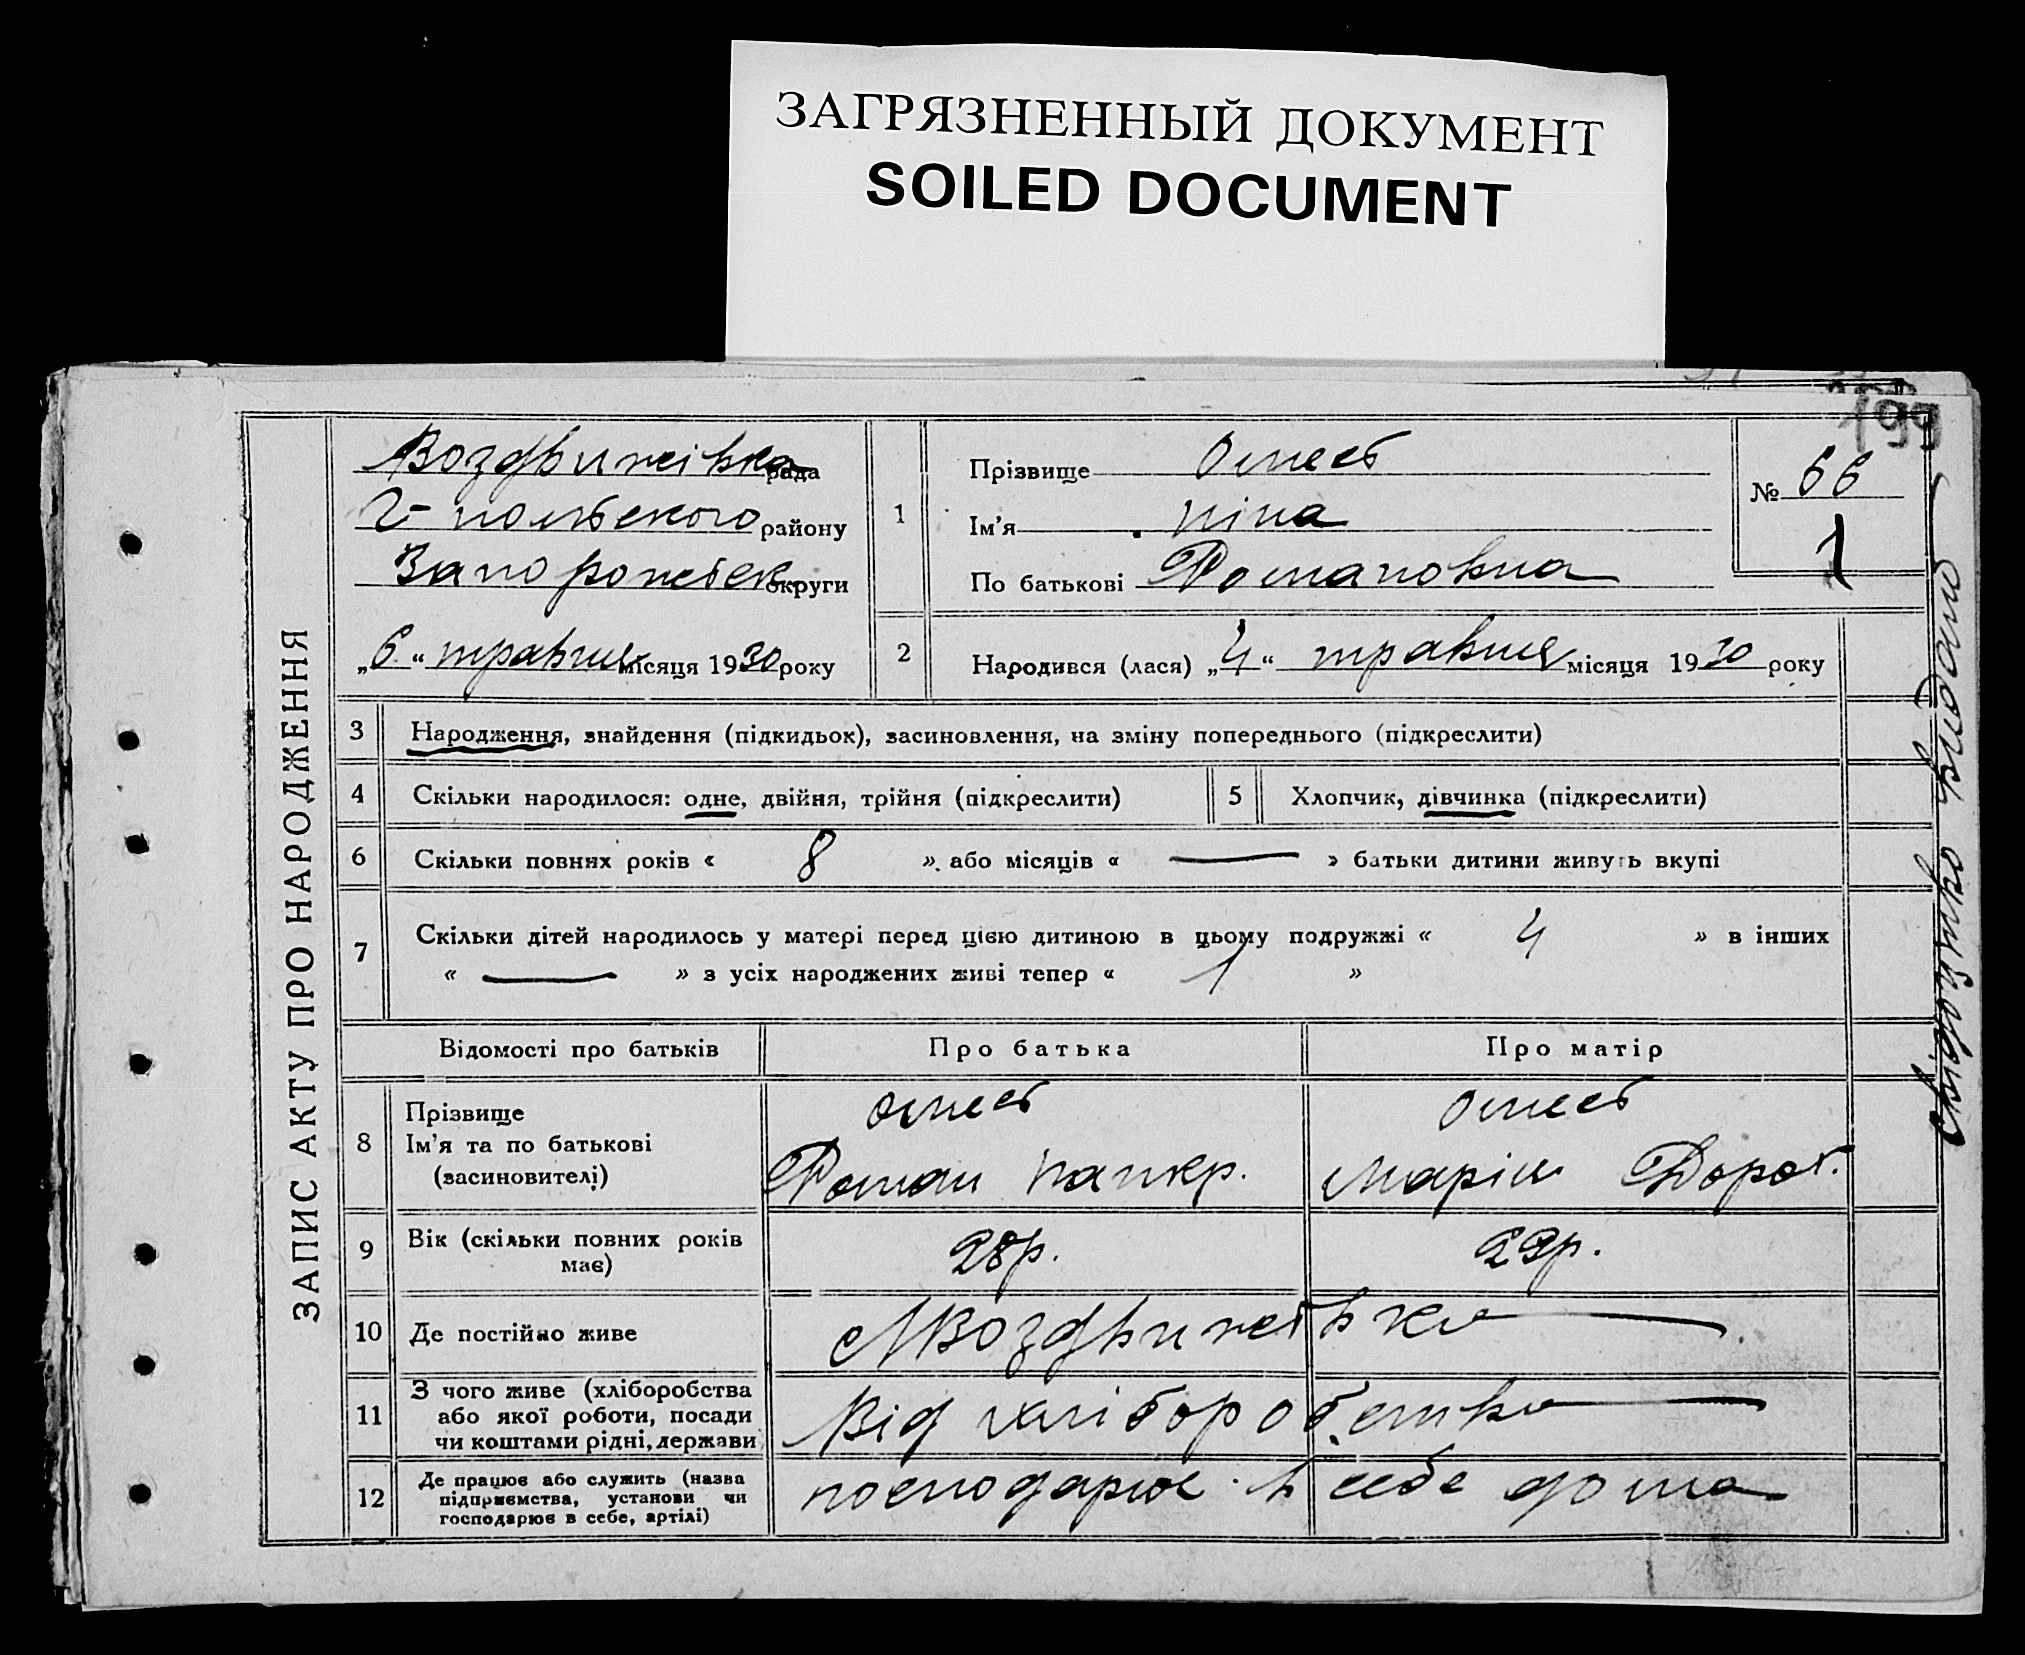 ЗАГРЯЗНЕННЫЙ ДОКУМЕНТ
SOILED DOCUMENT
199
ЗАПИС АКТУ ПРО НАРОДЖЕННЯ
Воздвижівка рада
Г-польского району
Запорожськ округи
„6“ травня місяця 1930 року
1
Прізвище Омесь
Ім'я Ніна
По батькові Романовна
№ 66
1
2
Народився (лася) „4“ травня місяця 1930 року
3 Народження, знайдення (підкидьок), засиновлення, на зміну попереднього (підкреслити)
4 Скільки народилося: одне, двійня, трійня (підкреслити)
5 Хлопчик, дівчинка (підкреслити)
6 Скільки повних років « 8 » або місяців « — » батьки дитини живуть вкупі
7 Скільки дітей народилось у матері перед цією дитиною в цьому подружжі « 4 » в інших
« — » з усіх народжених живі тепер « 1 »
Відомості про батьків Про батька Про матір
8 Прізвище
Ім'я та по батькові
(засиновителі)
Омесь
Роман Панкр.
Омесь
Марія Дороф.
9 Вік (скільки повних років
має)
28р. 29р.
10 Де постійно живе
Воздвижівка
11 З чого живе (хліборобства
або якої роботи, посади
чи коштами рідні, держави
Від хліборобства
12 Де працює або служить (назва
підприємства, установи чи
господарює в себе, артілі)
господарює в себе дома
свідоцтво видано